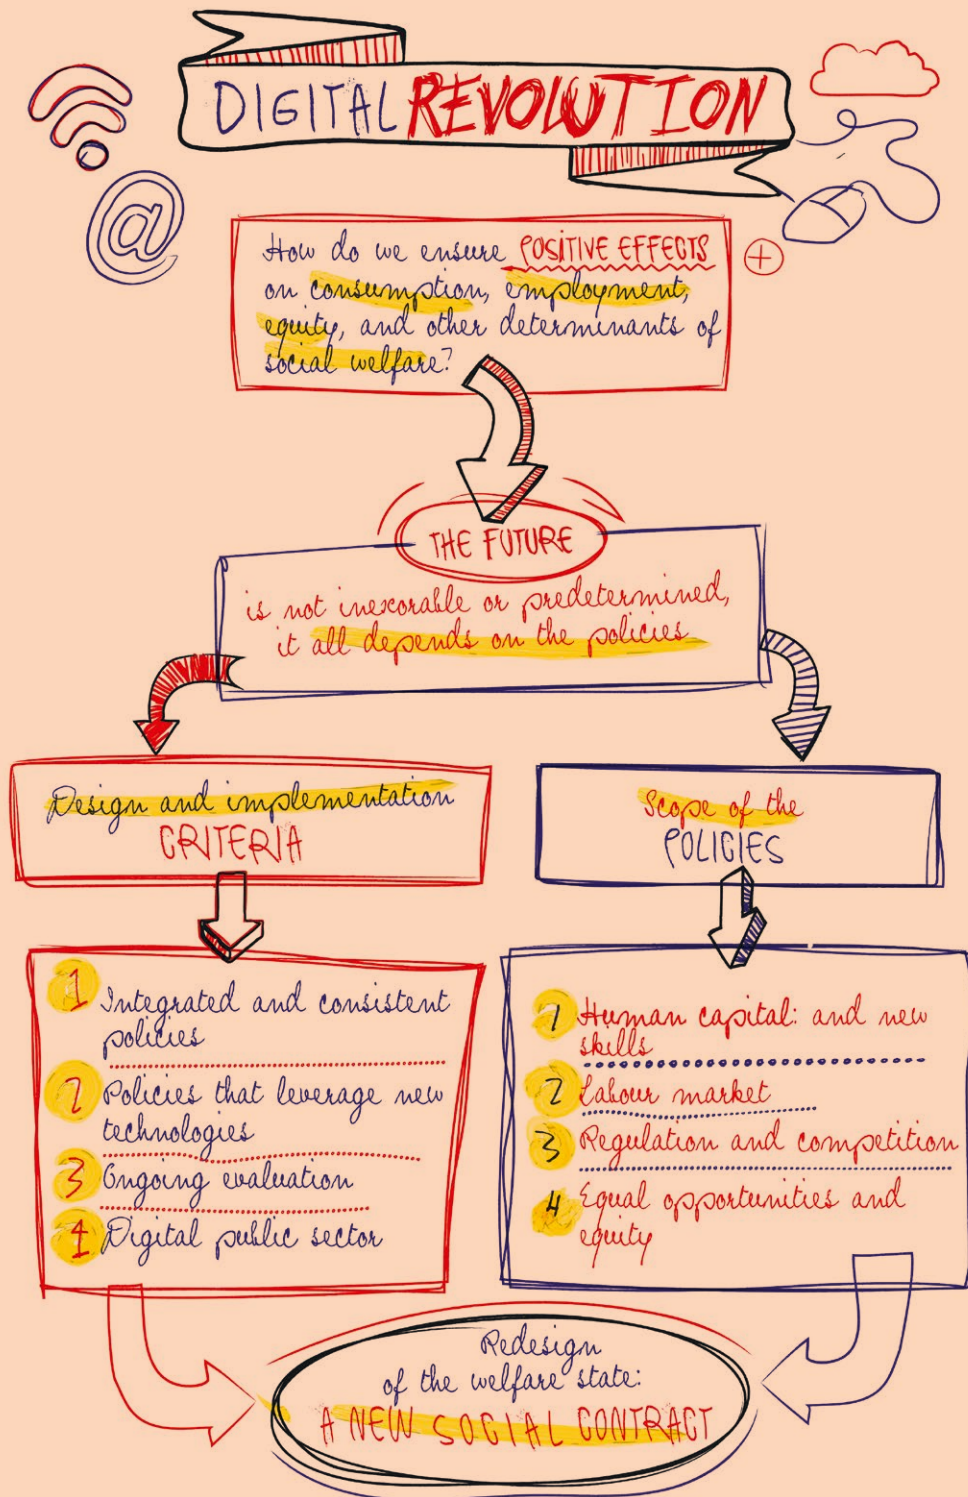 DIGITAL REVOLUTION
How do we ensure POSITIVE EFFECTS
on consumption, employment,
equity, and other determinants of
social welfare?
THE FUTURE
is not inexorable or predetermined,
it all depends on the policies
Design and implementation
CRITERIA
1 Integrated and consistent
policies
2 Policies that leverage new
technologies
3 Ongoing evaluation
4 Digital public sector
Scope of the
POLICIES
1 Human capital: and new
skills
2 Labour market
3 Regulation and competition
4 Equal opportunities and
equity
Redesign
of the welfare state:
A NEW SOCIAL CONTRACT